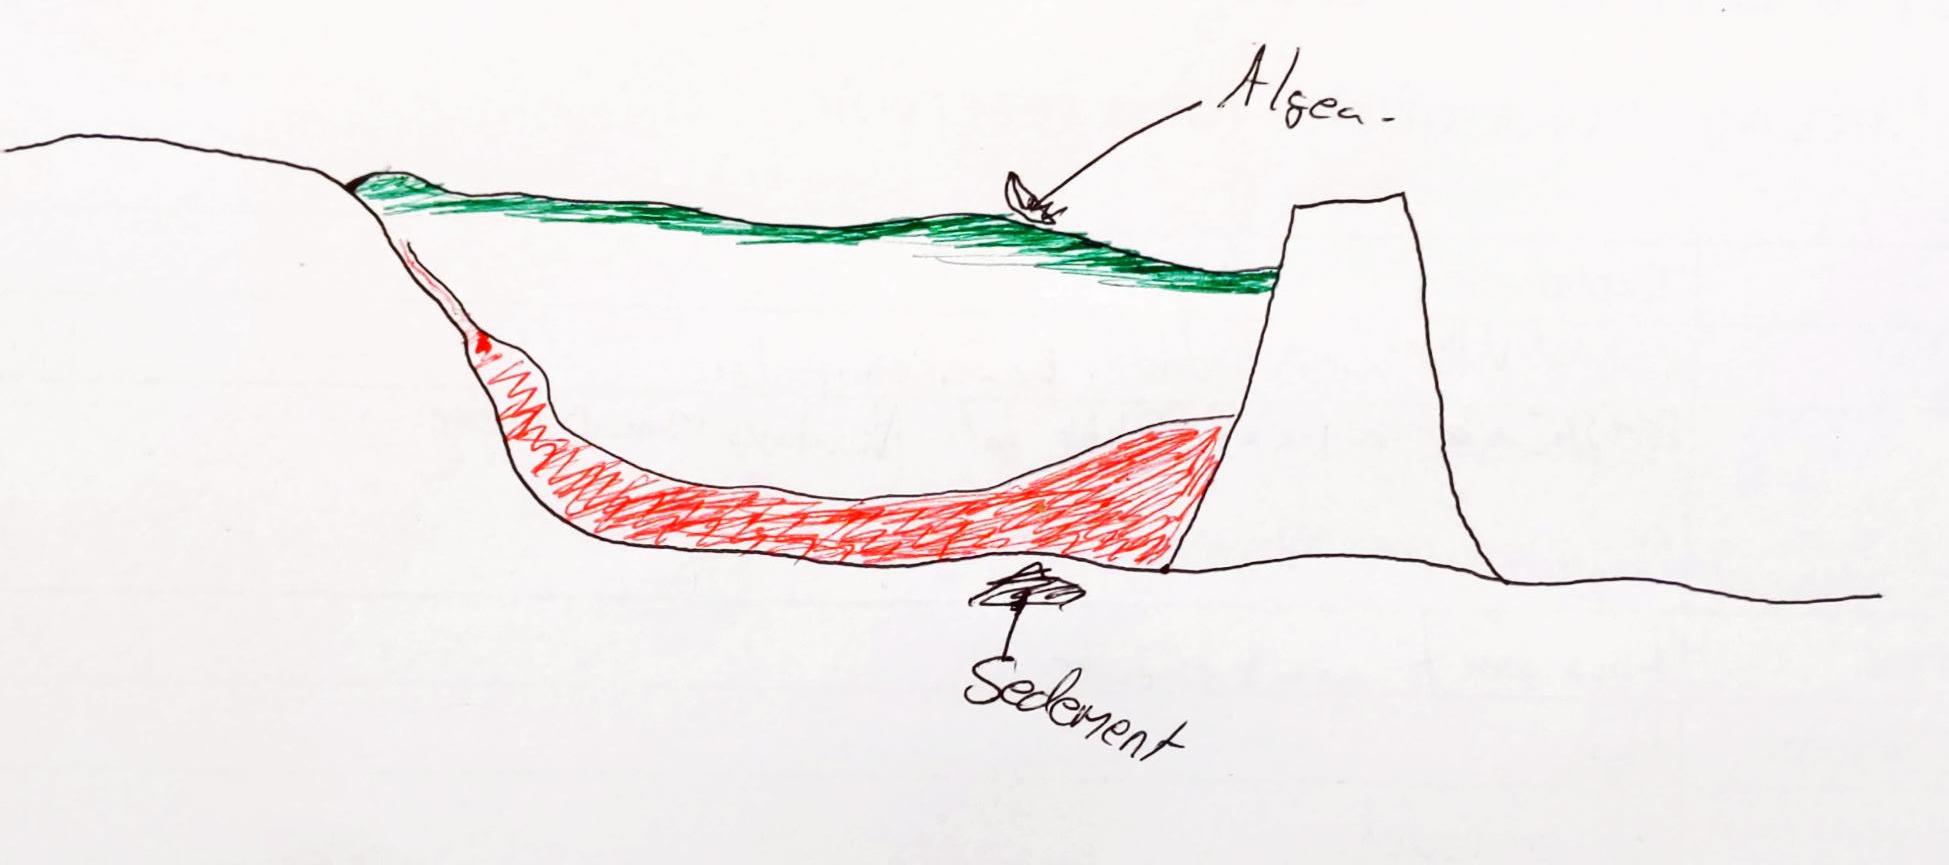 Algea.
Sedement